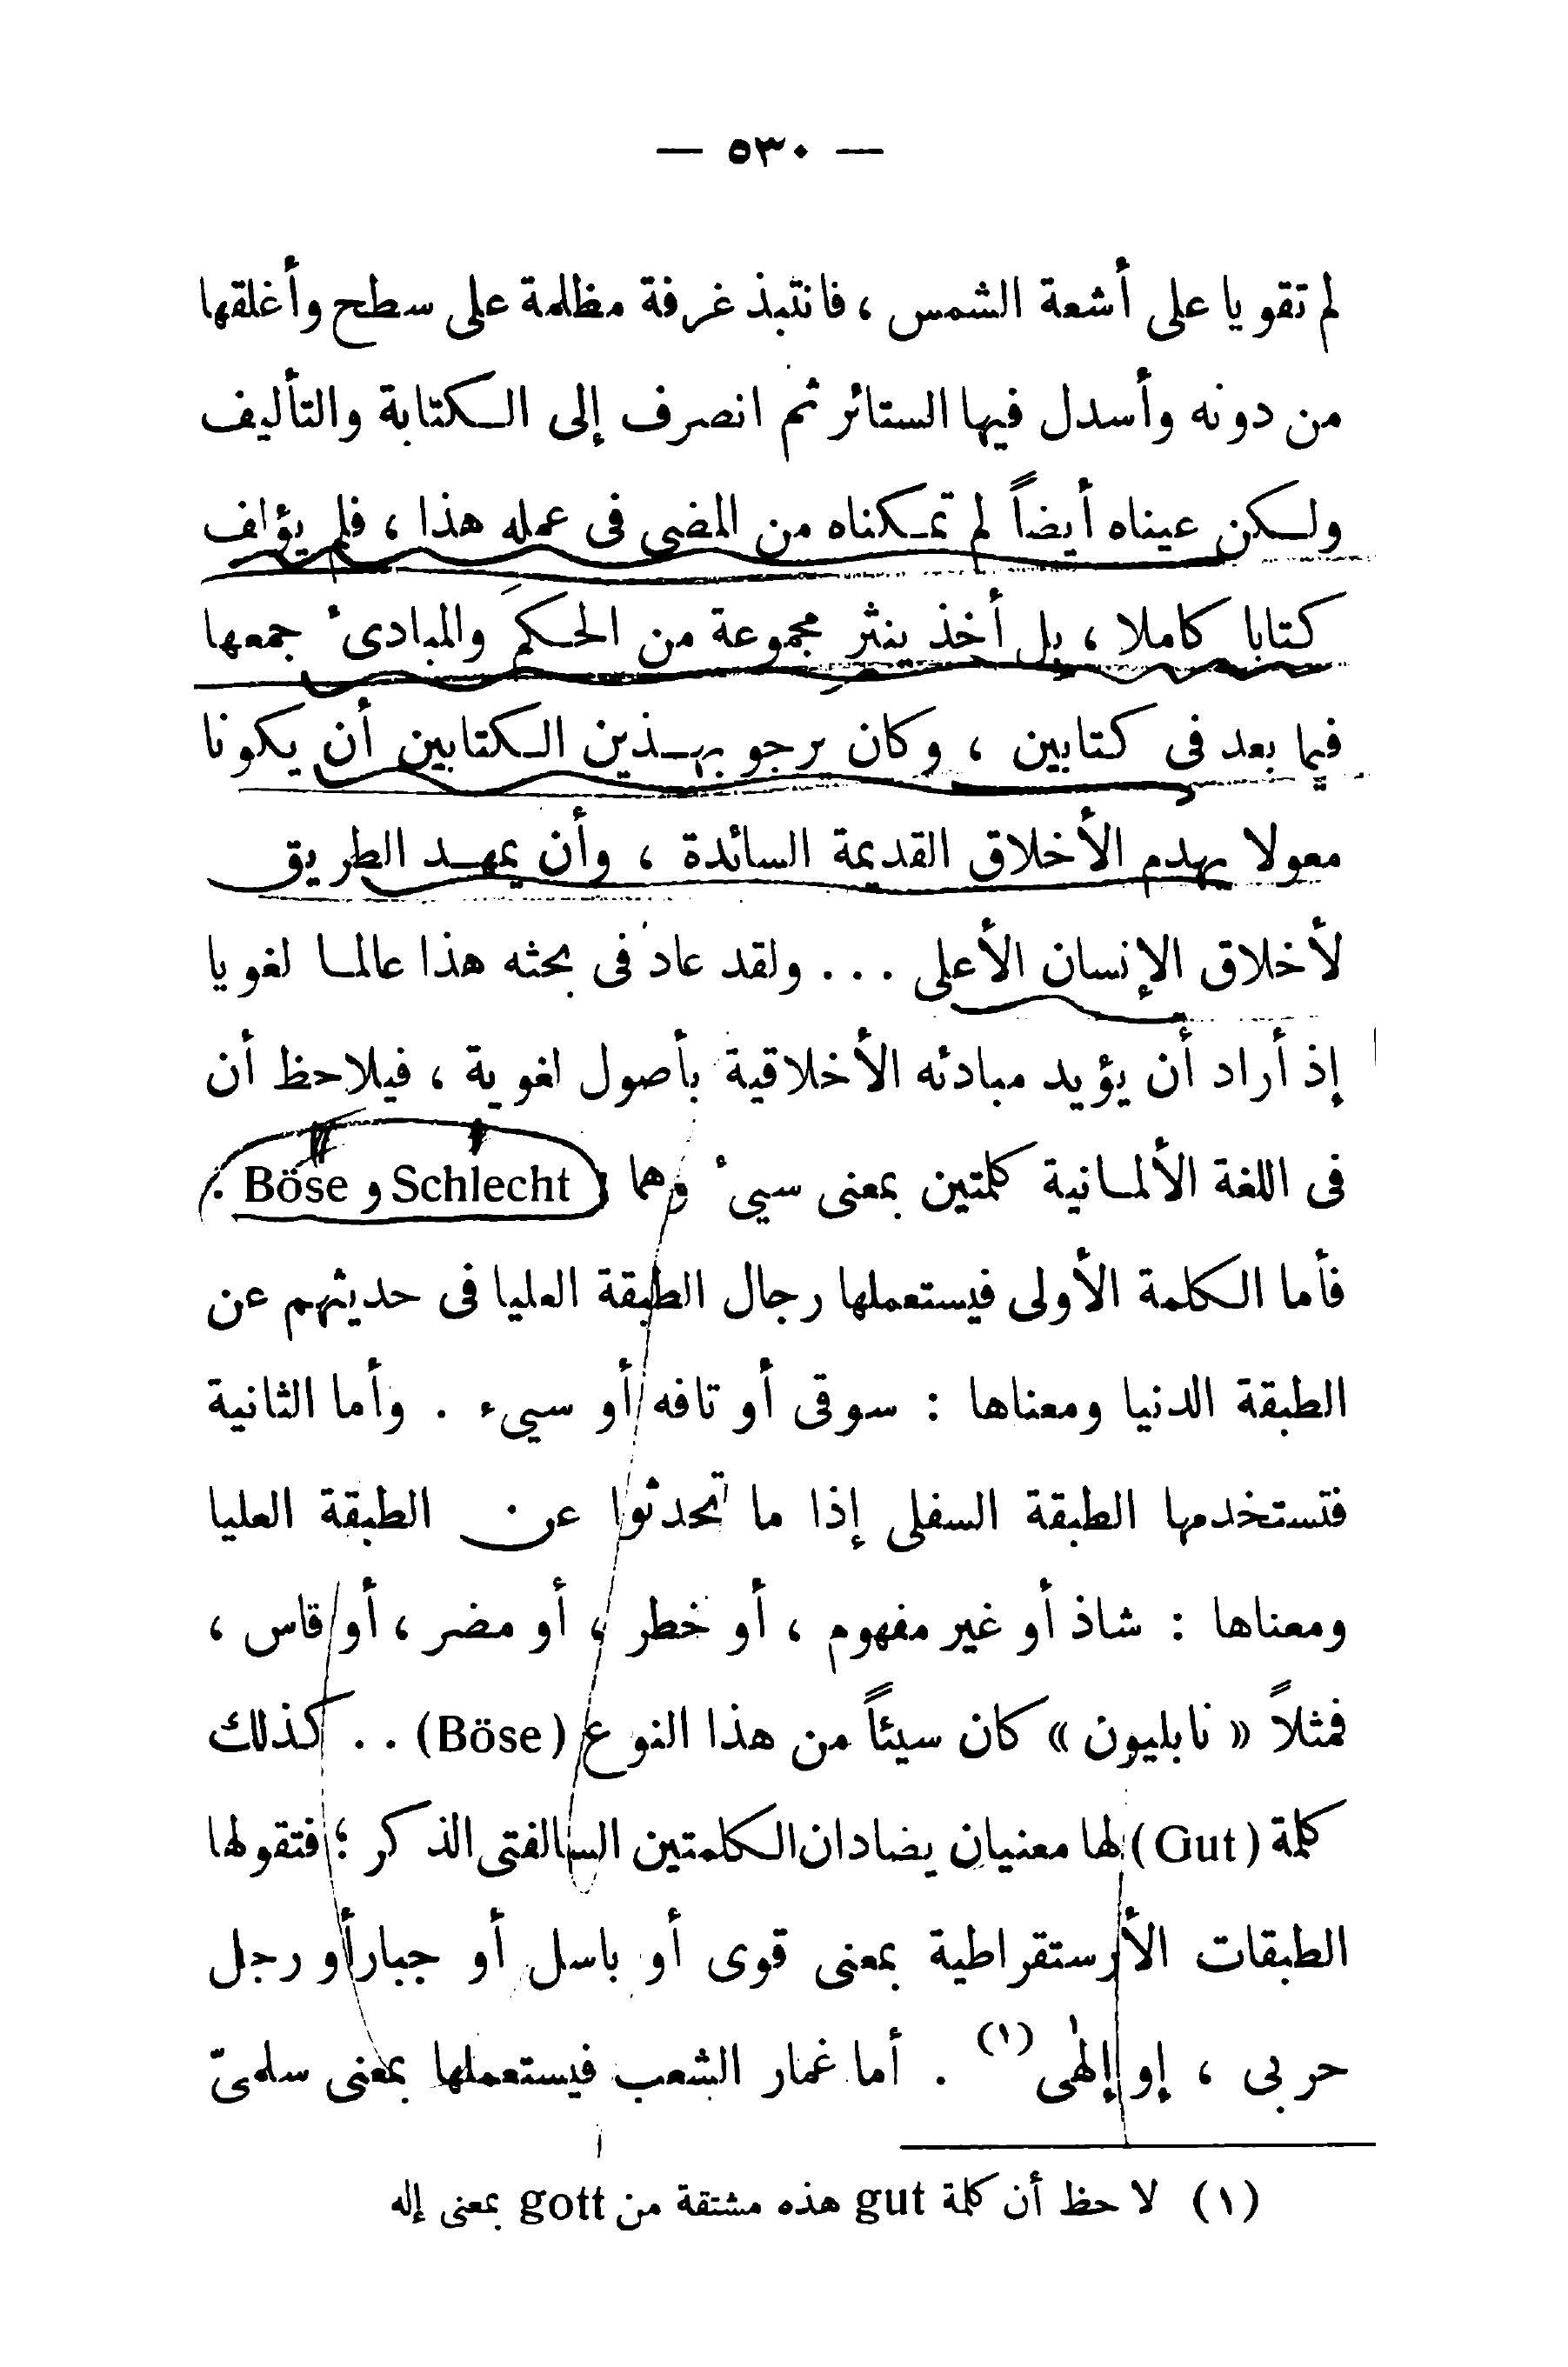 — ٥٣٠ —
لم تقويا على أشعة الشمس ، فانتبذ غرفة مظلمة على سطح وأغلقها
من دونه وأسدل فيها الستائر ثم انصرف إلى الكتابة والتأليف
ولكن عيناه أيضاً لم تمكناه من المضى فى عمله هذا ، فلم يؤلف
كتابا كاملا ، بل أخذ ينثر مجموعة من الحكم والمبادىء جمعها
فيما بعد فى كتابين ، وكان يرجو بهذين الكتابين أن يكونا
معولا يهدم الأخلاق القديمة السائدة ، وأن يمهد الطريق
لأخلاق الإنسان الأعلى . . . ولقد عاد فى بحثه هذا عالما لغويا
إذ أراد أن يؤيد مبادئه الأخلاقية بأصول لغوية ، فيلاحظ أن
فى اللغة الألمانية كلمتين بمعنى سيىء وهما Schlecht و Böse .
فأما الكلمة الأولى فيستعملها رجال الطبقة العليا فى حديثهم عن
الطبقة الدنيا ومعناها : سوقى أو تافه أو سيىء . وأما الثانية
فتستخدمها الطبقة السفلى إذا ما تحدثوا عن الطبقة العليا
ومعناها : شاذ أو غير مفهوم ، أو خطر ، أو مضر ، أو قاس ،
فمثلاً « نابليون » كان سيئاً من هذا النوع (Böse) . . كذلك
كلمة (Gut) لها معنيان يضادان الكلمتين السالفتى الذكر ؛ فتقولها
الطبقات الأرستقراطية بمعنى قوى أو باسل أو جبار أو رجل
حربى ، إو إلهٰى (١) . أما غمار الشعب فيستعملها بمعنى سلمىّ
(١) لاحظ أن كلمة gut هذه مشتقة من gott بمعنى إله